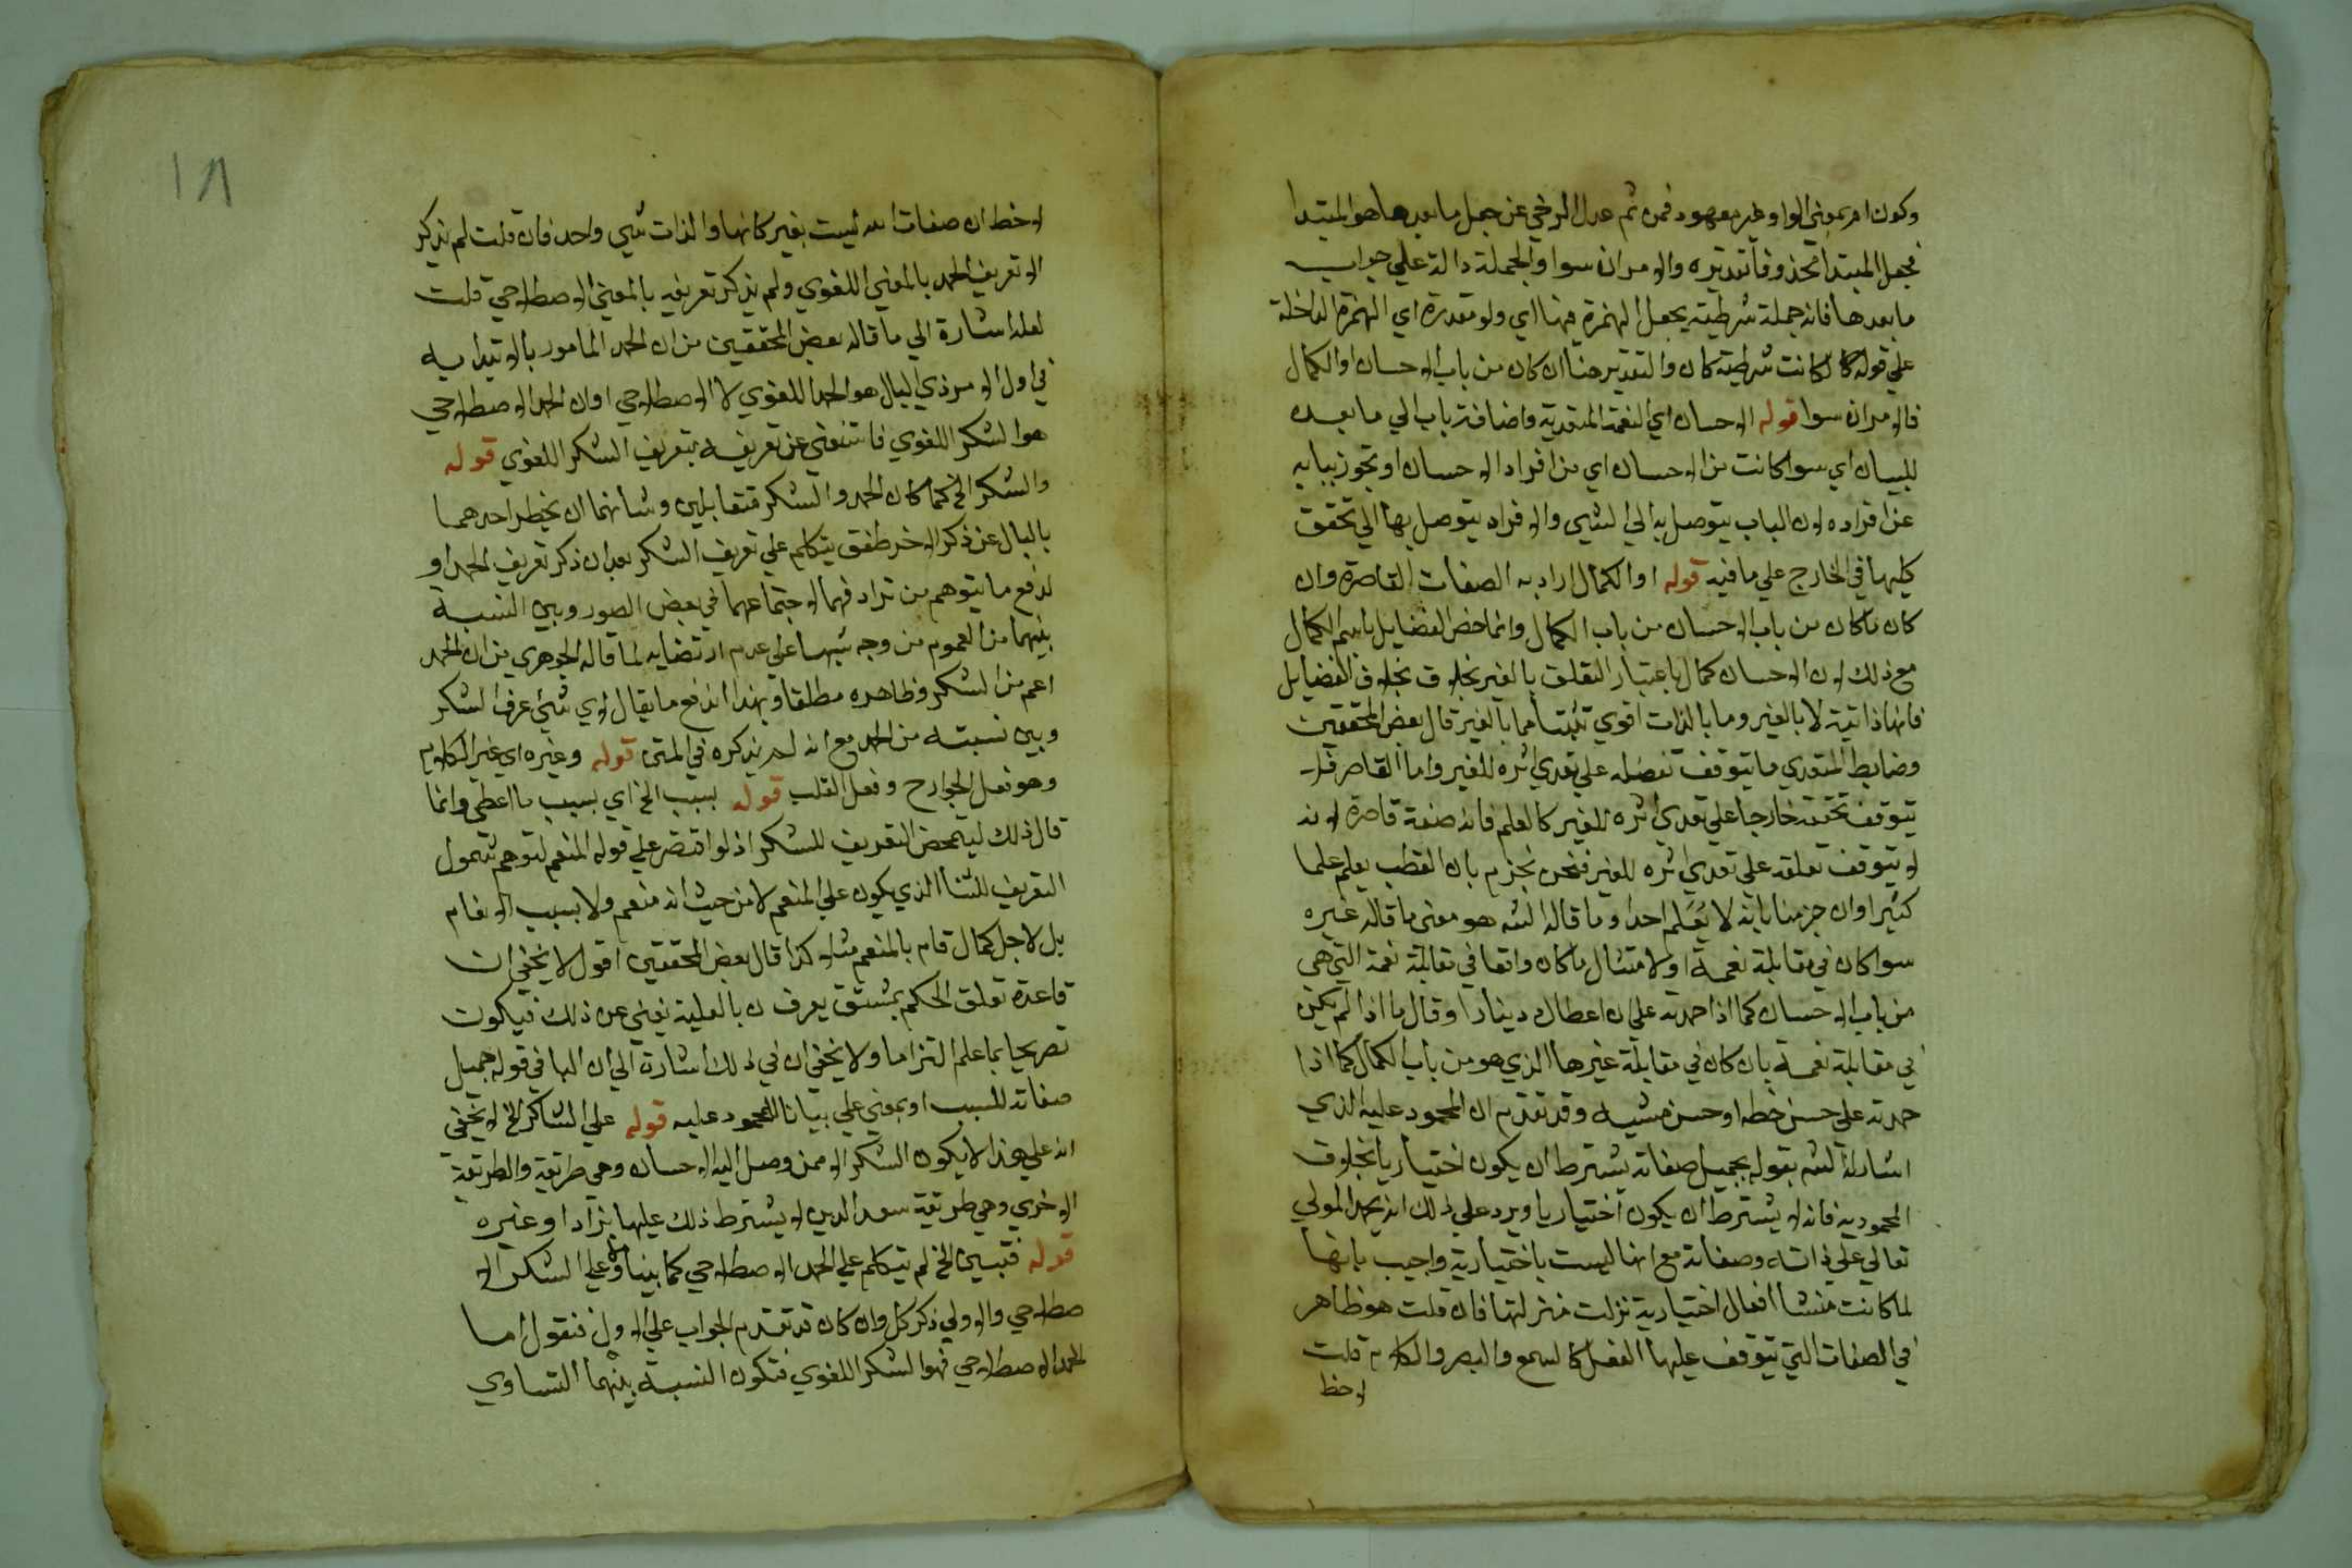 وكون ام بمعني الواو غير معهود فمن ثم عدل الرضي عن جعل ما بعدها هو المبتدا
فجعل المبتدا محذوفا تقديره والامران سوا والجملة دالة علي جواب
ما بعدها فانه جملة شرطية بجعل الهمزة فيها اي ولو مقدرة اي الهمزة الداخلة
علي قوله كا كانت شرطية كان والتقدير هنا ان كان من باب الاحسان او الكمال
فالامران سوا قوله الاحسان اي النعمة المتعدية واضافة باب الي ما بعده
للبيان اي سوا كانت من الاحسان اي من افراد الاحسان او تجوز ببابه
عن افراده لان الباب يتوصل به الي الشي والافراد يتوصل بها الي تحقق
كليها في الخارج علي ما فيه قوله او الكمال اراد به الصفات القاصرة وان
كان ما كان من باب الاحسان من باب الكمال وانما خص الفضايل باسم الكمال
مع ذلك لان الاحسان كمال باعتبار التعلق بالغير بخلاف بخلاف الفضايل
فانها ذاتية لا بالغير وما بالذات اقوي تثبتا مما بالغير قال بعض المحققين
وضابط المتعدي ما يتوقف تعقله علي تعدي اثره للغير واما القاصر فلا
يتوقف تحققه خارجا علي تعدي اثره للغير كالعلم فانه صفة قاصرة لانه
لا يتوقف تعلقه علي تعدي اثره للغير فنحن نجزم بان القطب يعلم علما
كثيرا وان جزمنا بانه لا يعلم احدا وما قاله الش هو معني ما قاله غيره
سوا كان في مقابلة نعمة او لا مثال ما كان واقعا في مقابلة نعمة التي هي
من باب الاحسان كما اذا حمدته علي ان اعطاك دينارا وقال ما اذا لم يكن
في مقابلة نعمة بان كان في مقابلة غيرها الذي هو من باب الكمال كما اذا
حمدته علي حسن خطه او حسن مشيه وقد تقدم ان المحمود عليه الذي
اشار له الش بقوله بجميل صفاته يشترط ان يكون اختياريا بخلاف
المحمود به فانه لا يشترط ان يكون اختياريا ويرد علي ذلك انه يحمد المولي
تعالي علي ذاته وصفاته مع انها ليست باختيارية واجيب بانها
لما كانت منشا افعال اختيارية نزلت منزلتها فان قلت هو ظاهر
في الصفات التي تتوقف عليها الفعل كالسمع والبصر والكلام قلت
لاحظ
١٨
لاحظ ان صفات الله ليست بغير كانها والذات شي واحد فان قلت لم يذكر
الا تعريف الحمد بالمعني اللغوي ولم يذكر تعريفه بالمعني الاصطلاحي قلت
لعله اشارة الي ما قاله بعض المحققين من ان الحمد المامور بالابتدا به
في اول الامر ذي البال هو الحمد اللغوي لا الاصطلاحي او ان الحمد الاصطلاحي
هو الشكر اللغوي فاستغني عن تعريفه بتعريف الشكر اللغوي قوله
والشكر الخ كما كان الحمد والشكر متقابلين وشانهما ان يخطر احدهما
بالبال عن ذكر الاخر طفق يتكلم علي تعريف الشكر بعد ان ذكر تعريف الحمد او
لدفع ما يتوهم من ترادفهما لاجتماعهما في بعض الصور وبين النسبة
بينهما من العموم من وجه تنبيها علي عدم ارتضايه لما قاله الجوهري من ان الحمد
اعم من الشكر وظاهره مطلقا وبهذا اندفع ما يقال لاي شي عرف الشكر
وبين نسبته من الحمد مع انه لم يذكره في المتن قوله وغيره اي غير الكلام
وهو فعل الجوارح وفعل القلب قوله بسبب الخ اي بسبب ما اعطي وانما
قال ذلك ليتمحض التعريف للشكر اذ لو اقتصر علي قوله المنعم لتوهم شمول
التعريف للثنا الذي يكون علي المنعم لا من حيث انه منعم ولا بسبب الانعام
بل لاجل كمال قام بالمنعم مثلا كذا قال بعض المحققين اقول لا يخفي ان
قاعدة تعلق الحكم بمشتق يعرف ن بالعلية تغني عن ذلك فيكون
تصريحا بما علم التزاما ولا يخفي ان في ذلك اشارة الي ان البا في قوله جميل
صفاته للسبب او بمعني علي بيانا للمحمود عليه قوله علي الشاكر الخ لا يخفي
انه علي هذا لا يكون الشكر الا ممن وصل اليه الاحسان وهي طريقة والطريقة
الاخري وهي طريقة سعد الدين لا يشترط ذلك عليها يزاد او غيره
قوله فتبين الخ لم يتكلم علي الحمد الاصطلاحي كما بيناه وعلي الشكر الا
صطلاحي والاولي ذكر كل وان كان قد تقدم الجواب علي الاول فنقول اما
الحمد الاصطلاحي فهو الشكر اللغوي فتكون النسبة بينهما التساوي